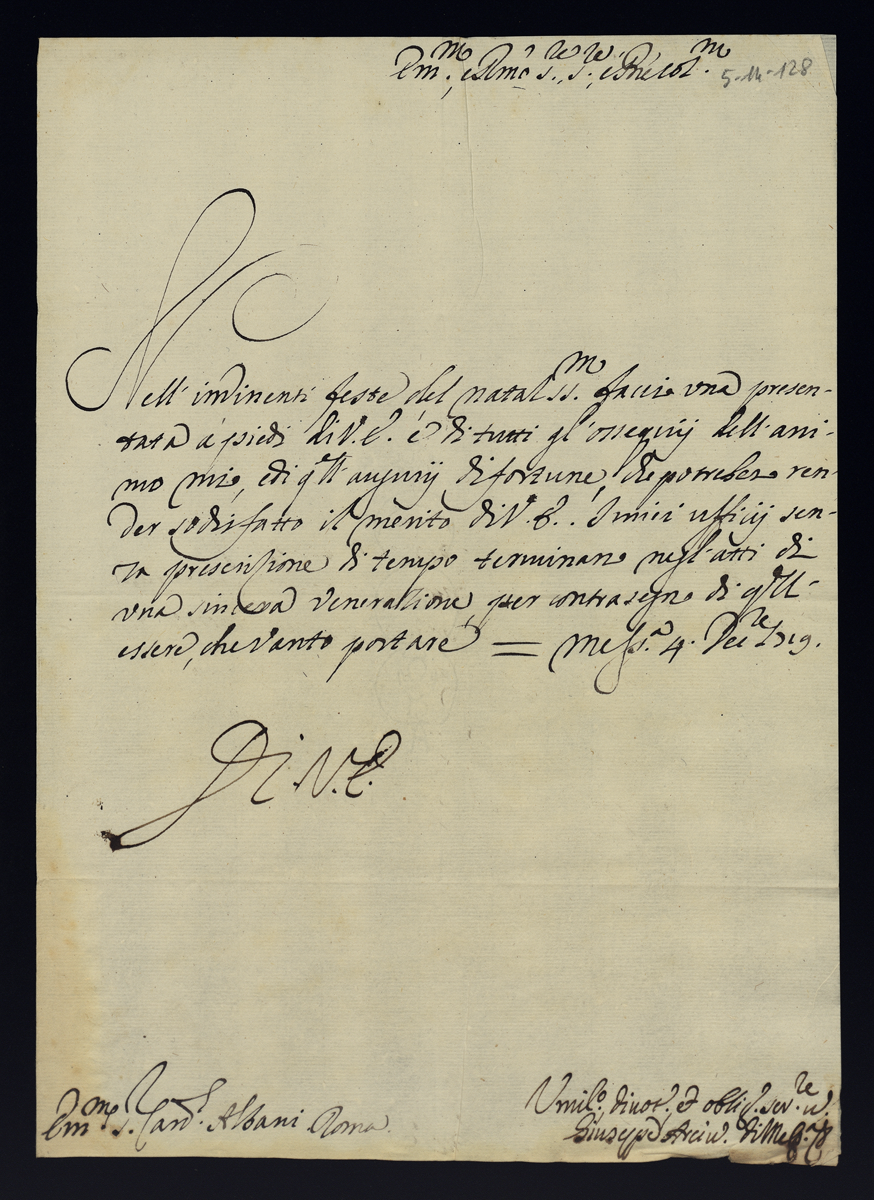 Em.mo, e Rmo S.re, S.re, e Prne Col.mo
5-14-128
Nell' imminenti feste del natal ss.mo faccio una presen-
tata à piedi di V. E. è di tutti gl' ossequij dell' ani-
mo mio, e di q'll' augurij di fortune, che potrebero ren-
der sodisfatto il merito di V. E.. I miei ufficij sen-
za prescrizione di tempo terminano negl' atti di
una sincera venerazione, per contrasegno di q'll'
essere, che vanto portare = Mess.a 4. Dec.re 1719.
Di V. E.
Em.mo S. Card.l Albani Roma.
Umil.o, divot.o, et oblig. ser.re v.
Giuseppe Arciv. di Mess.a